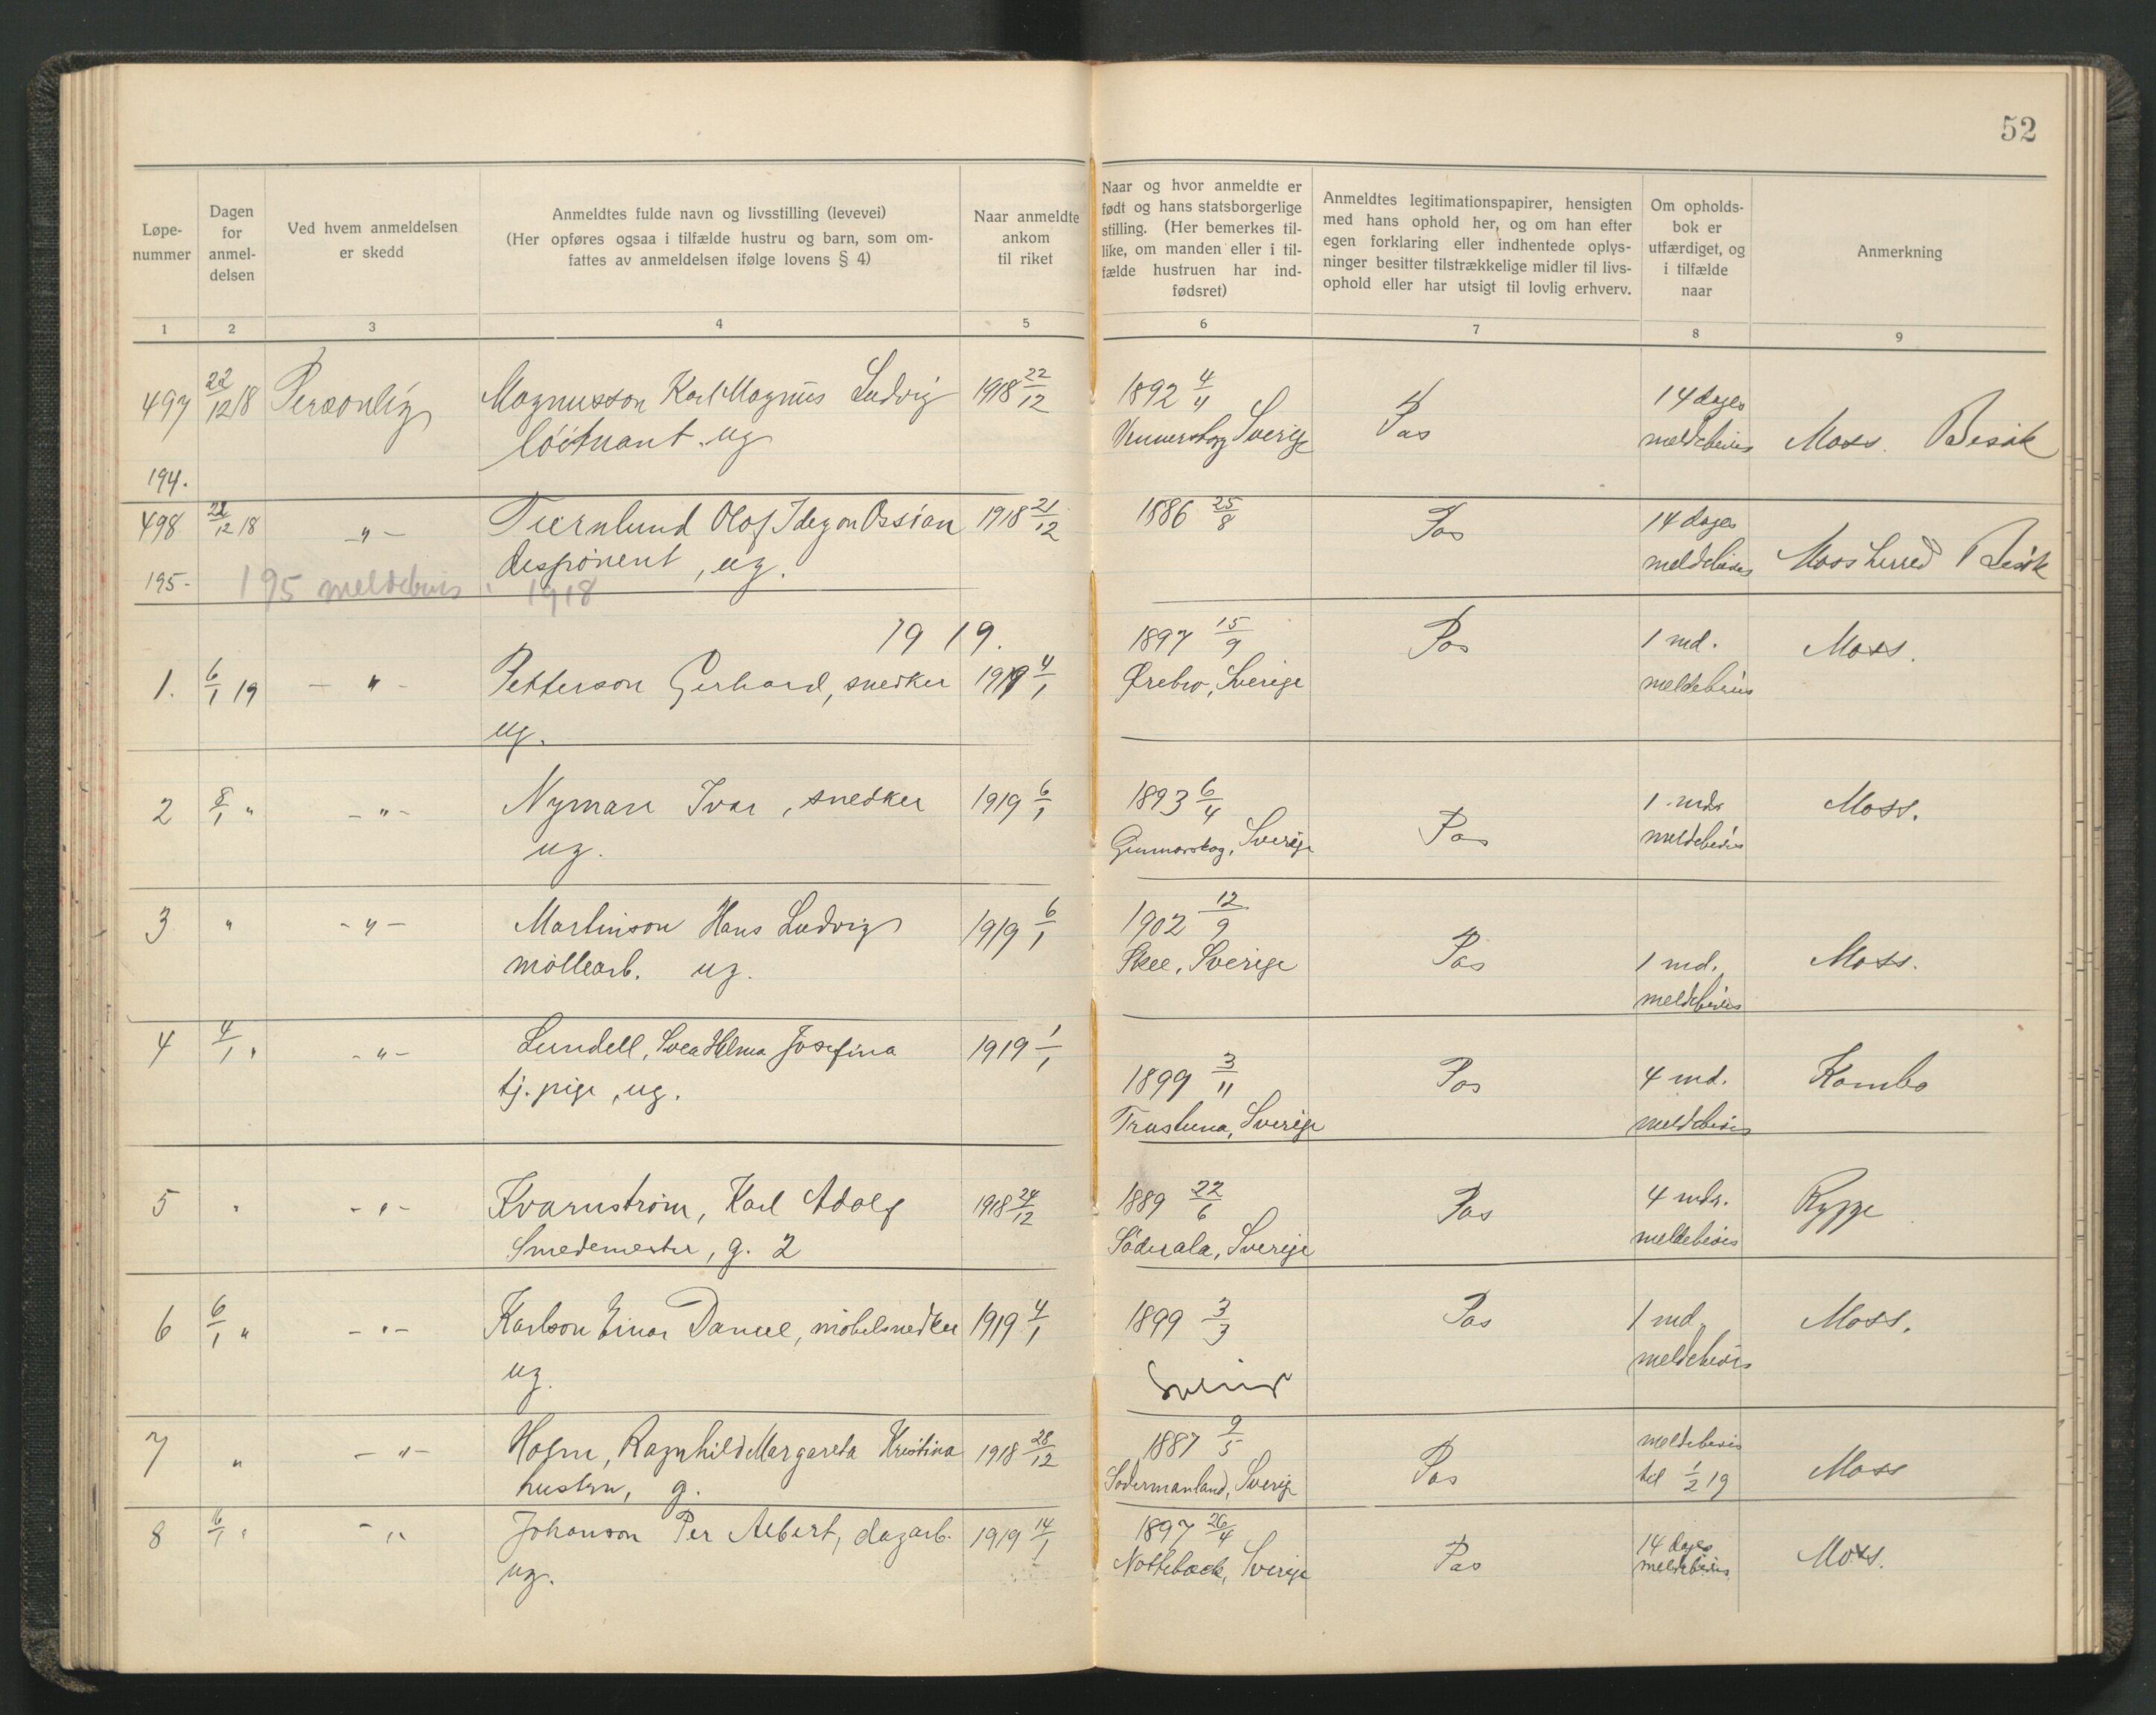 52
Løpe-
nummer
Dagen
for
anmel-
delsen
Ved hvem anmeldelsen
er skedd
Anmeldtes fulde navn og livsstilling (levevei)
(Her opføres ogsaa i tilfælde hustru og barn, som om-
fattes av anmeldelsen ifølge lovens § 4)
Naar anmeldte
ankom
til riket
Naar og hvor anmeldte er
født og hans statsborgerlige
stilling. (Her bemerkes til-
like, om manden eller i til-
fælde hustruen har ind-
fødsret)
Anmeldtes legitimationspapirer, hensigten
med hans ophold her, og om han efter
egen forklaring eller indhentede oplys-
ninger besitter tilstrækkelige midler til livs-
ophold eller har utsigt til lovlig erhverv.
Om opholds-
bok er
utfærdiget, og
i tilfælde
naar
Anmerkning
1 2 3 4 5 6 7 8 9
497 22/12 18 Personlig Magnusson Karl Magnus Ludvig 1918 22/12 1892 4/11 Pas 14 dages
løitnant. ug Vennersborg Sverige meldebevis Moss. Besøk
194.
498 22/12 18 -"- Olof Ossian 1918 21/12 1886 25/8 Pas 14 dages
disponent, ug. meldebevis Moss herred Besøk
195- 195 meldebevis 1918
1919.
1. 6/1 19 -"- Petterson Gerhard, snedker 1919 4/1 1897 15/9 Pas 1 md. Moss.
ug. Ørebro, Sverige meldebevis
2 8/1 " -"- Nyman Ivar, snedker 1919 6/1 1893 6/4 Pas 1 mds Moss.
ug. Gunnarskog, Sverige meldebevis
3 " -"- Martinson Hans Ludvig 1919 6/1 1902 12/9 Pas 1 md. Moss.
møllearb. ug. Skee, Sverige meldebevis
4 4/1 " -"- Lundell, Svea Hilma Josefina 1919 1/1 1899 3/11 Pas 4 md. Kambo
tj. pige, ug. Trustuna, Sverige meldebevis
5 " -"- Kvarnström, Karl Adolf 1918 24/12 1889 22/6 Pas 4 mds. Rygge
Smedemester, g. 2 Söderala, Sverige meldebevis
6 6/1 " -"- Karlson Einar Daniel, møbelsnedker 1919 4/1 1899 3/3 Pas 1 md. Moss.
ug. meldebevis
7 " -"- Holm, Ragnhild Margareta Kristina 1918 28/12 1887 9/5 Pas meldebevis Moss
hustru, g. Södermanland, Sverige til 1/2 19
8 6/1 " -"- Johanson Per Albert, dagarb. 1919 14/1 1897 26/4 Pas 14 dages Moss.
ug. Notteback, Sverige meldebevis